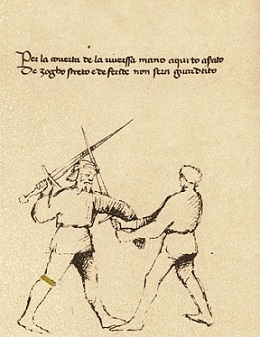 Per la coverta de la riverssa mano aqui to aferato
De zogho streto e de feride non serà guardato